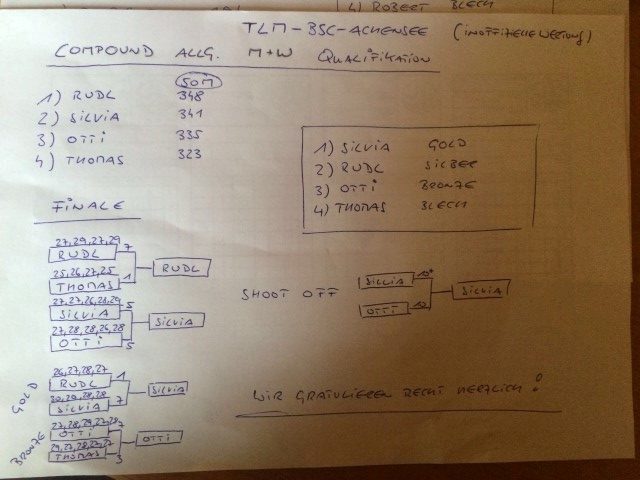 4) ROBERT BLECH
TLM-BSC-ACHENSEE (INOFFIZIELLE WERTUNG)
COMPOUND ALLG. M+W QUALIFIKATION
50M
1) RUDL 348
2) SILVIA 341
3) OTTI 335
4) THOMAS 323
1) SILVIA GOLD
2) RUDL SILBER
3) OTTI BRONZE
4) THOMAS BLECH
FINALE
27,29,27,29
RUDL 7
RUDL
25,26,27,25
THOMAS 1
27,27,26,28,29
SILVIA 5
SILVIA
27,28,28,26,28
OTTI 5
SHOOT OFF
SILVIA 10*
SILVIA
OTTI 10
GOLD
26,27,28,27
RUDL 1
SILVIA
30,29,28,28
SILVIA 7
BRONZE
27,28,29,27,28
OTTI 7
OTTI
29,27,28,27,27
THOMAS 3
WIR GRATULIEREN RECHT HERZLICH!